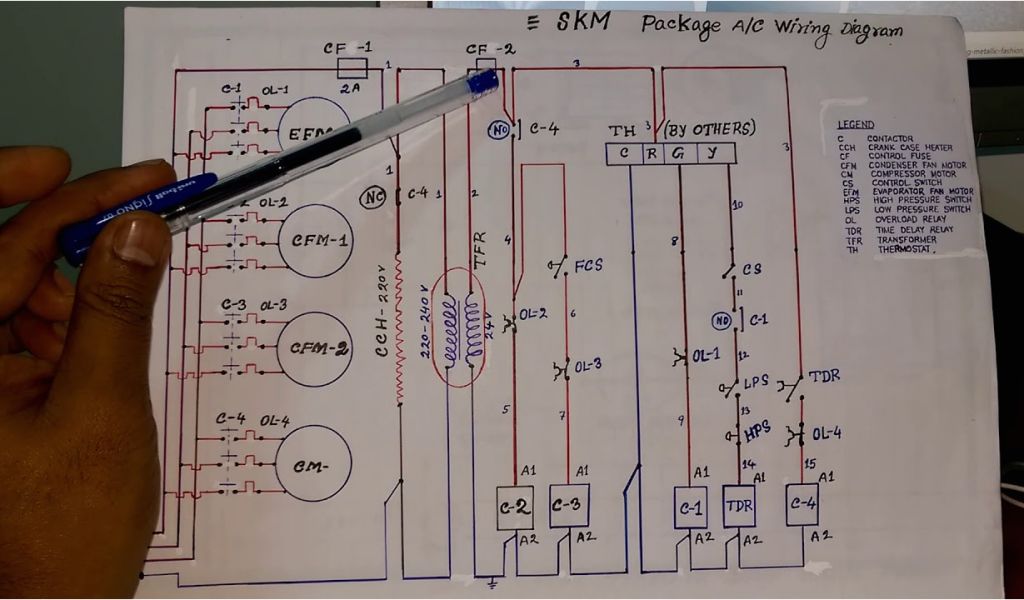 ≡ SKM Package A/C Wiring Diagram
CF -1
CF -2
2A
1
3
C-1 OL-1
EFM
NO
C-4
TH 3 (BY OTHERS)
C R G Y
LEGEND
C CONTACTOR
CCH CRANK CASE HEATER
CF CONTROL FUSE
CFM CONDENSER FAN MOTOR
CM COMPRESSOR MOTOR
CS CONTROL SWITCH
EFM EVAPORATOR FAN MOTOR
HPS HIGH PRESSURE SWITCH
LPS LOW PRESSURE SWITCH
OL OVERLOAD RELAY
TDR TIME DELAY RELAY
TFR TRANSFORMER
TH THERMOSTAT.
3
1
NC
C-4
1
2
10
OL-2
CFM-1
TFR
4
8
FCS
CS
CCH-220V
220-240V
24V
11
6
OL-2
NO
C-1
C-3 OL-3
CFM-2
OL-3
OL-1
12
LPS
TDR
5
7
9
13
HPS
OL-4
C-4 OL-4
CM-
14
15
A1
A1
A1
A1
A1
C-2
C-3
C-1
TDR
C-4
A2
A2
A2
A2
A2
uni-ball SIGNO
g-metallic-fashion